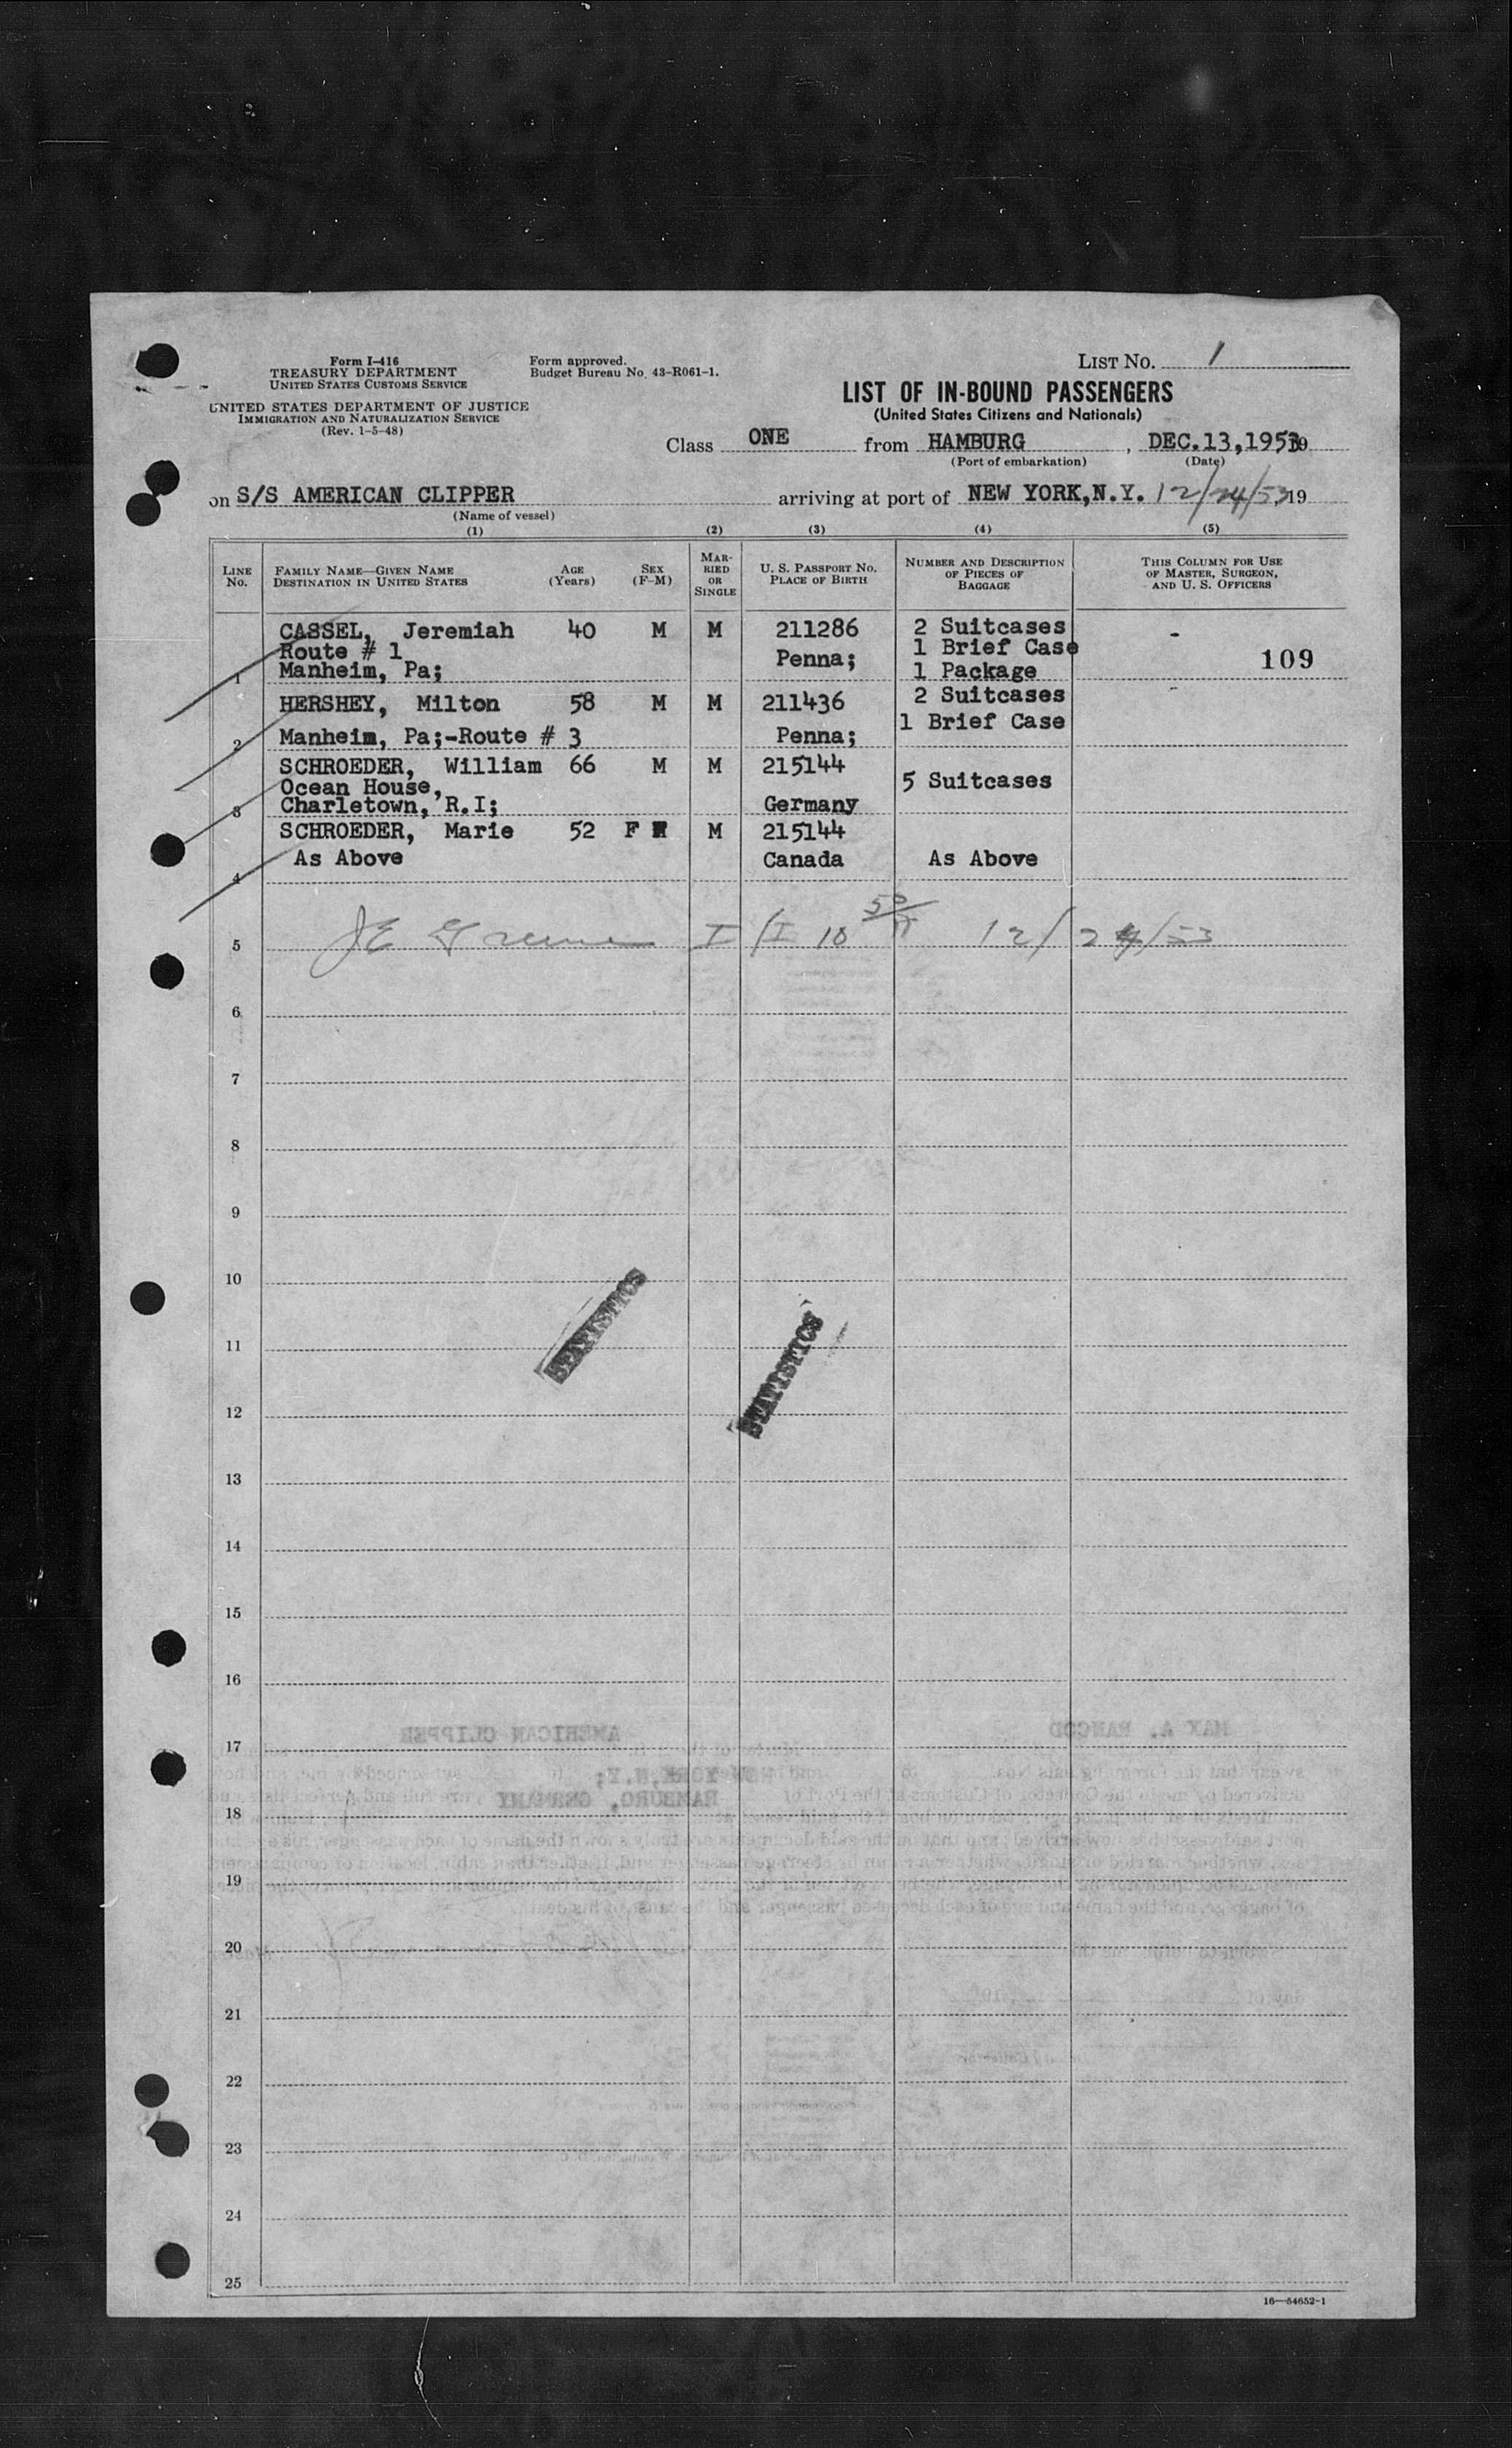 Form I-416
TREASURY DEPARTMENT
UNITED STATES CUSTOMS SERVICE
UNITED STATES DEPARTMENT OF JUSTICE
IMMIGRATION AND NATURALIZATION SERVICE
(Rev. 1-5-48)
Form approved.
Budget Bureau No. 43-R061-1.
LIST NO. 1
LIST OF IN-BOUND PASSENGERS
(United States Citizens and Nationals)
Class ONE from HAMBURG, DEC.13,1953
(Port of embarkation) (Date)
on S/S AMERICAN CLIPPER arriving at port of NEW YORK,N.Y. 12/24/53 19
(Name of vessel)
(1) (2) (3) (4) (5)
LINE No. FAMILY NAME—GIVEN NAME DESTINATION IN UNITED STATES AGE (Years) SEX (F-M) MARRIED OR SINGLE U. S. PASSPORT NO. PLACE OF BIRTH NUMBER AND DESCRIPTION OF PIECES OF BAGGAGE THIS COLUMN FOR USE OF MASTER, SURGEON, AND U. S. OFFICERS
CASSEL, Jeremiah 40 M M 211286 2 Suitcases -
Route # 1 1 Brief Case
1 Manheim, Pa; Penna; 1 Package 109
HERSHEY, Milton 58 M M 211436 2 Suitcases -
1 Brief Case
2 Manheim, Pa;-Route # 3 Penna;
SCHROEDER, William 66 M M 215144
Ocean House, 5 Suitcases
3 Charletown, R.I; Germany
SCHROEDER, Marie 52 F M 215144
4 As Above Canada As Above
5 12/24/53
6
7
8
9
10
STATISTICS
11
STATISTICS
12
13
14
15
16
AMERICAN CLIPPER
17
NEW YORK,N.Y;
HAMBURG, GERMANY
18
19
20
21
22
23
24
25
16—54652-1